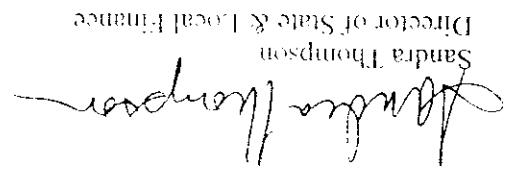 Sandra Thompson
Sandra Thompson
Director of State & Local Finance